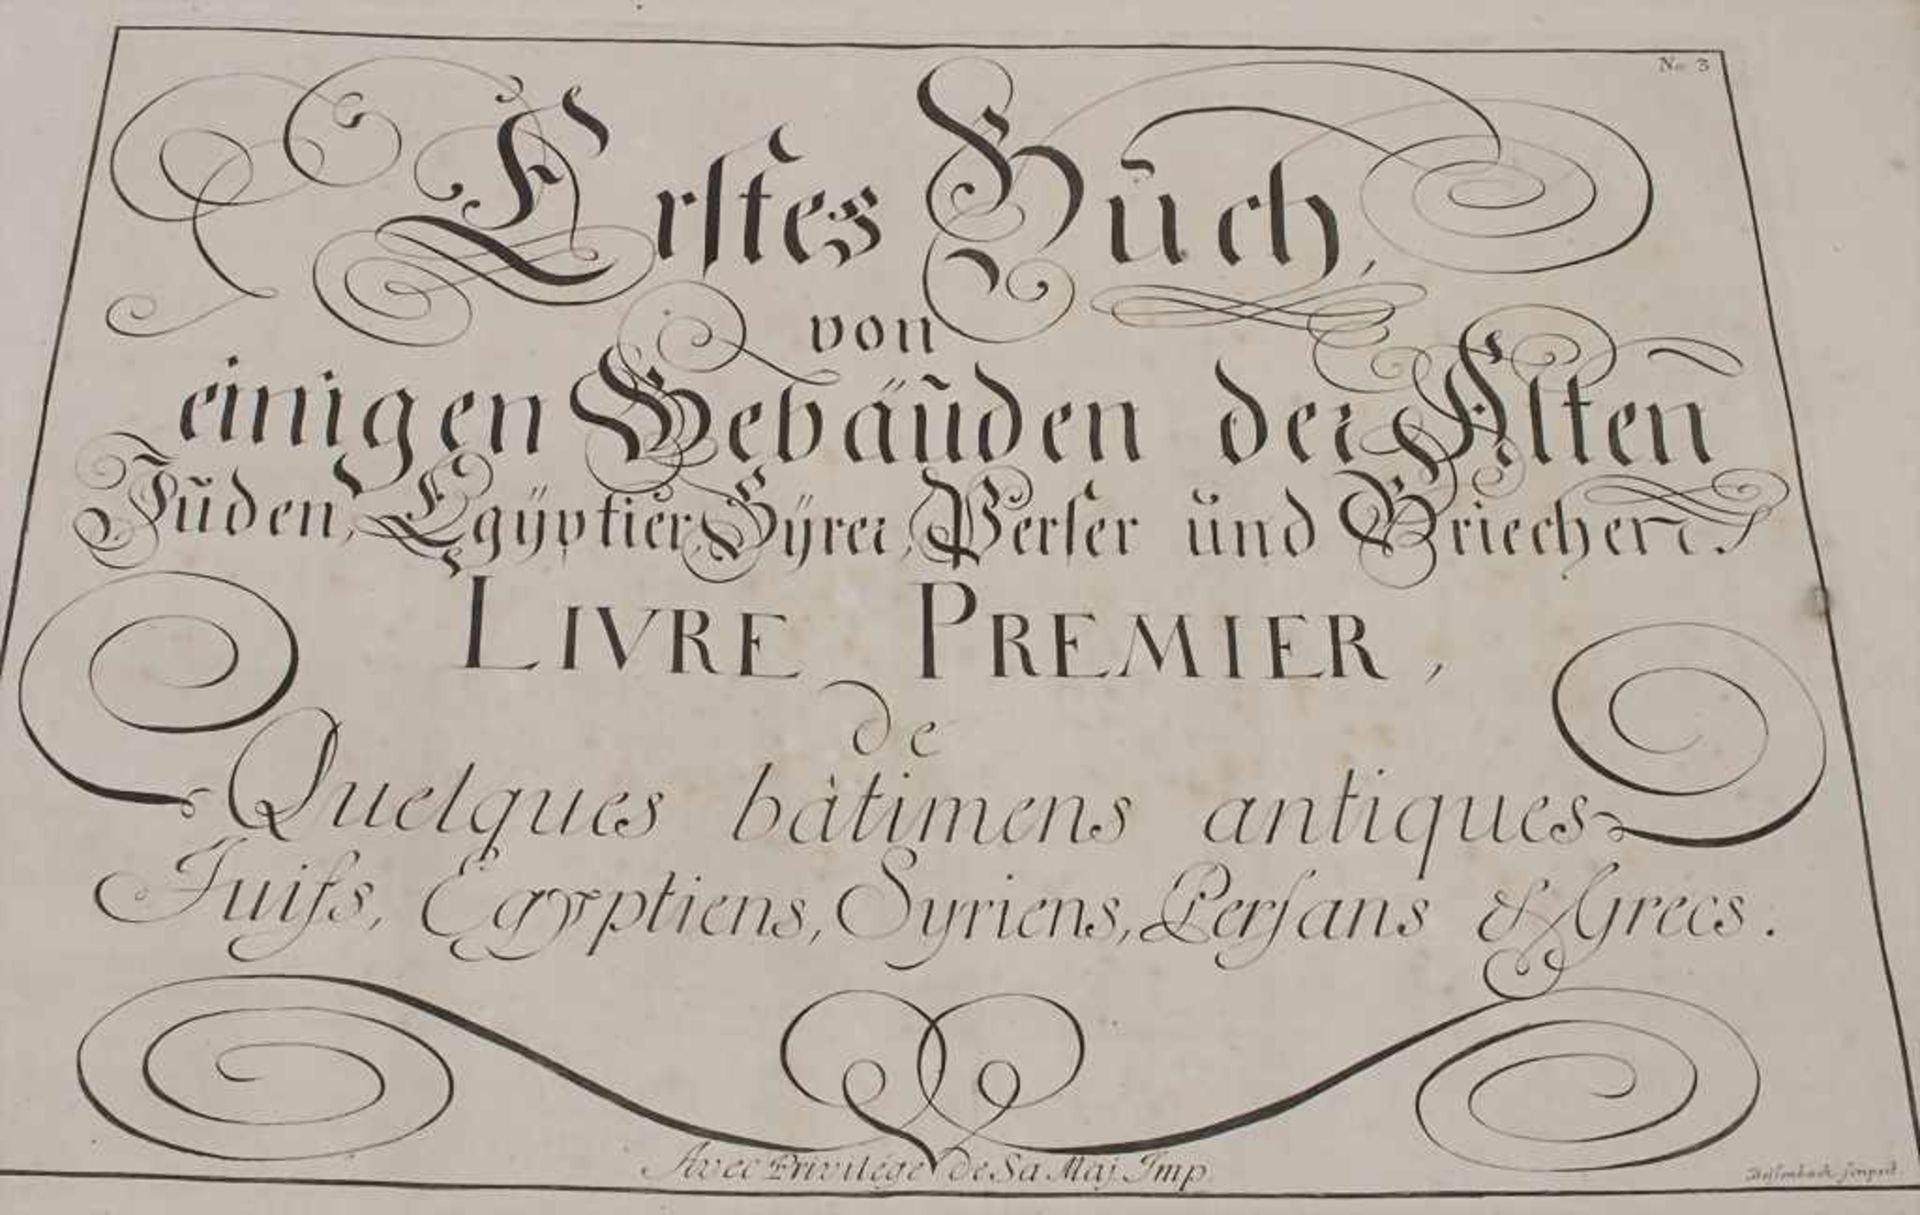 No. 3
Erſtes Bŭch,
von
einigen Gebäŭden der Alten
Jŭden, Egÿptier, Sÿrer, Perſer ŭnd Griechen.
LIVRE PREMIER,
de
Quelques bâtimens antiques
Juifs, Egyptiens, Syriens, Perſans & Grecs.
Avec Privilége de Sa Maj. Imp.